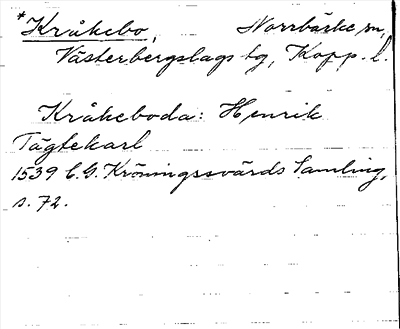 *Kråkebo, Norrbärke sn,
Västerbergslags tg, Kopp. l.
Kråkeboda: Henrik
Tägtekarl
1539 C.G. Kröningssvärds Samling,
s. 72.